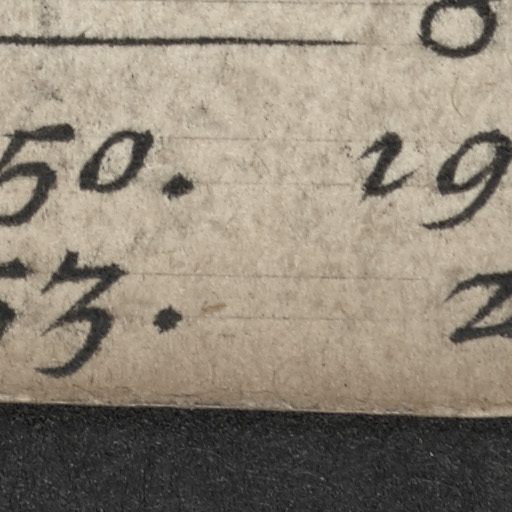 8
50. 19
53. 2